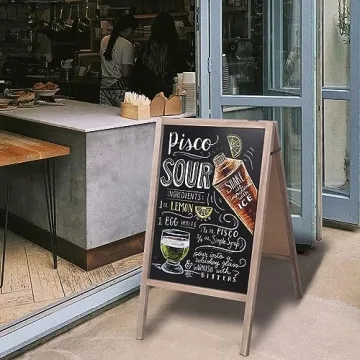 Pisco
SOUR
INGREDIENTS:
1 oz LEMON
1 EGG WHITE
1 ½ oz. PISCO
¾ oz Simple Syrup
SHAKE
with
ICE
pour into a
whiskey glass
& GARNISH WITH
BITTERS